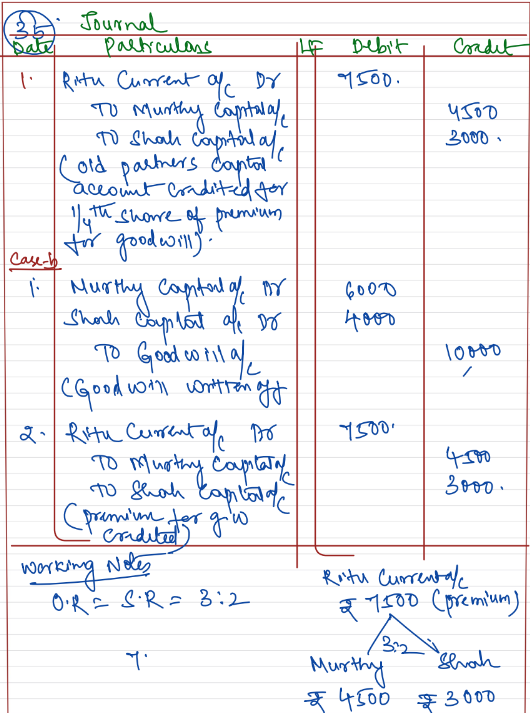 35 Journal
Date Particulars LF Debit Credit
1. Ritu Current a/c Dr 7500.
To Murthy Capital a/c 4500
To Shah Capital a/c 3000.
(old partners capital
account credited for
1/4th share of premium
for goodwill).
Case-b
1. Murthy Capital a/c Dr 6000
Shah Capital a/c Dr 4000
To Goodwill a/c 10000
(Goodwill written off
2. Ritu Current a/c Dr 7500.
To Murthy Capital a/c 4500
To Shah Capital a/c 3000.
(premium for g.w
credited)
Working Notes
O.R = S.R = 3:2
Ritu Current a/c
₹ 7500 (premium)
3:2
7. Murthy Shah
₹ 4500 ₹ 3000